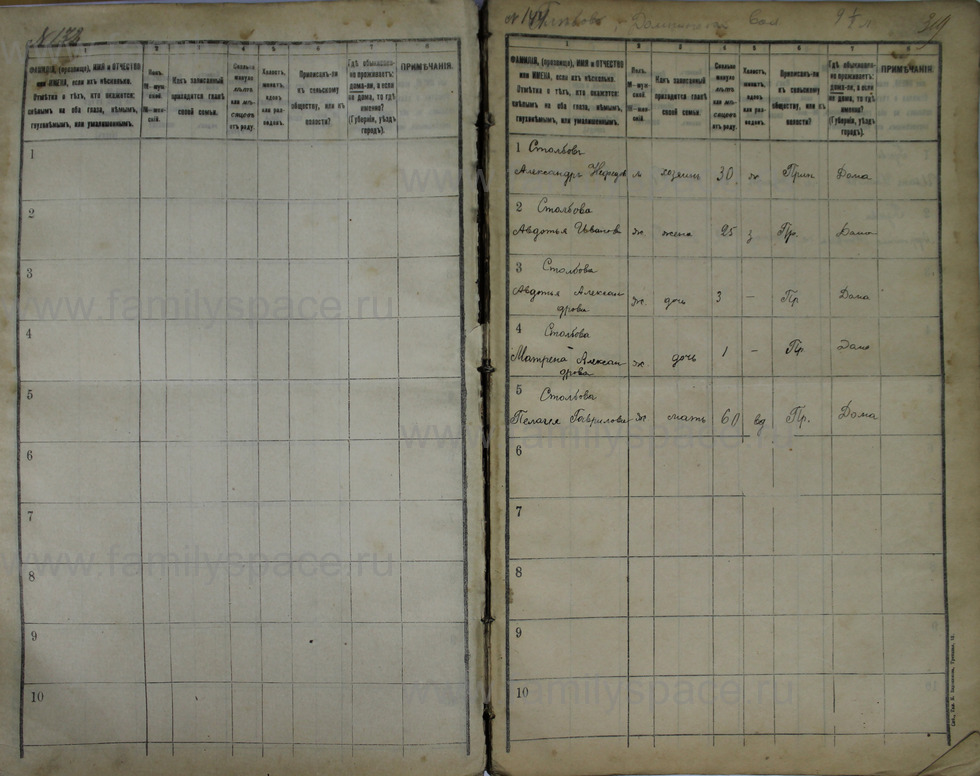 № 173
1
2
3
4
5
6
7
8
ФАМИЛІЯ, (прозвище), ИМЯ и ОТЧЕСТВО
или ИМЕНА, если ихъ нѣсколько.
Отмѣтка о тѣхъ, кто окажется:
слѣпымъ на оба глаза, нѣмымъ,
глухонѣмымъ, или умалишеннымъ.
Полъ.
М-муж-
ской
Ж-жен-
скій.
Какъ записанный
приходится главѣ
своей семьи.
Сколько
минуло
лѣтъ
или мѣ-
сяцевъ
отъ роду.
Холостъ,
женатъ,
вдовъ
или раз-
веденъ.
Приписанъ-ли
къ сельскому
обществу, или къ
волости?
Гдѣ обыкновен-
но проживаетъ:
дома-ли, а если
не дома, то гдѣ
именно?
(Губернія, уѣздъ
городъ).
ПРИМѢЧАНІЯ.
1
2
3
4
5
6
7
8
9
10
№ 174
319
1
2
3
4
5
6
7
8
ФАМИЛІЯ, (прозвище), ИМЯ и ОТЧЕСТВО
или ИМЕНА, если ихъ нѣсколько.
Отмѣтка о тѣхъ, кто окажется:
слѣпымъ на оба глаза, нѣмымъ,
глухонѣмымъ, или умалишеннымъ.
Полъ.
М-муж-
ской
Ж-жен-
скій.
Какъ записанный
приходится главѣ
своей семьи.
Сколько
минуло
лѣтъ
или мѣ-
сяцевъ
отъ роду.
Холостъ,
женатъ,
вдовъ
или раз-
веденъ.
Приписанъ-ли
къ сельскому
обществу, или къ
волости?
Гдѣ обыкновен-
но проживаетъ:
дома-ли, а если
не дома, то гдѣ
именно?
(Губернія, уѣздъ
городъ).
ПРИМѢЧАНІЯ.
1 Столбовъ
Александръ м хозяинъ 30 ж Прип Дома
2 Столбова
Авдотья Иванов ж жена 25 з Пр. Дома
3 Столбова
Авдотья Алексан ж. дочь 3 — Пр Дома
дрова
4 Столбова
Матрена Алексан ж. дочь 1 — Пр Дома
дрова
5 Столбова
Пелагея Гаврилова ж мать 60 вд Пр. Дома
6
7
8
9
10
www.familyspace.ru
www.familyspace.ru
www.familyspace.ru